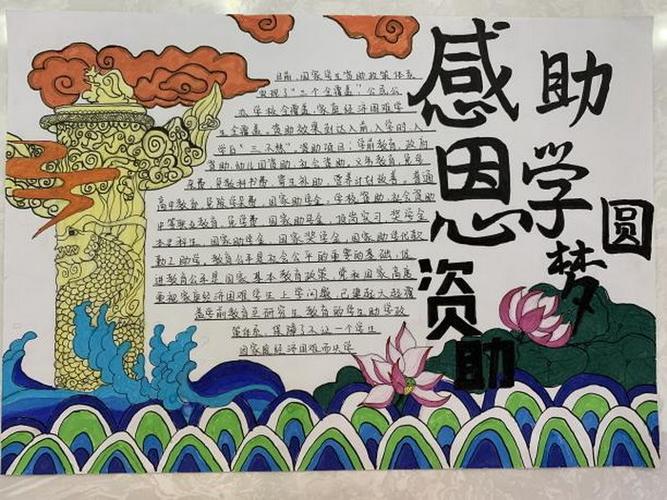 感恩资助
助学圆梦
目前,国家学生资助政策体系
实现了"三个全覆盖"公民公
办学校全覆盖,家庭经济困难学
生全覆盖,资助效果到达入前,入学时,入
学后"三不愁",资助项目:学前教育,政府
资助,幼儿园资助,社会资助,义务教育,免
杂费,免教科书费,寄生补助,营养计划改善,普通
高中教育,免除学杂费,国家助学金,学校资助,社会资助
中等职业教育,免学费,国家助学金,顶岗实习,奖学金
本专科生,国家助学金,国家奖学金,国家助学贷款
勤工助学,教育公平是社会公平的重要的基础,促
进教育公平是国家基本教育政策,党和国家高度
重视家庭经济困难学生上学问题,已建起大致覆
盖学前教育至研究生教育的学生助学政
策体系,保障了不让一个学生
因家庭经济困难而失学